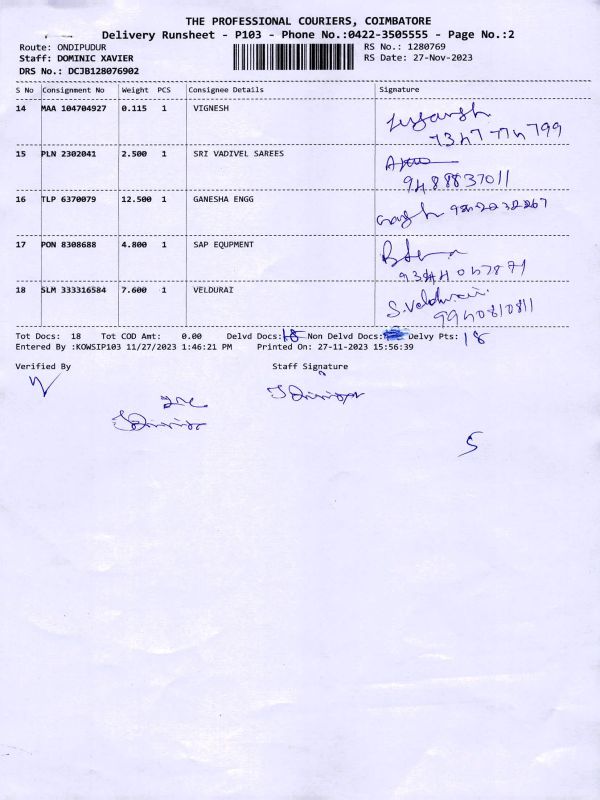 THE PROFESSIONAL COURIERS, COIMBATORE
Delivery Runsheet - P103 - Phone No.:0422-3505555 - Page No.:2
Route: ONDIPUDUR RS No.: 1280769
Staff: DOMINIC XAVIER RS Date: 27-Nov-2023
DRS No.: DCJB128076902
S No Consignment No Weight PCS Consignee Details Signature
14 MAA 104704927 0.115 1 VIGNESH
15 PLN 2302041 2.500 1 SRI VADIVEL SAREES
9488837011
16 TLP 6370079 12.500 1 GANESHA ENGG
17 PON 8308688 4.800 1 SAP EQUPMENT
18 SLM 333316584 7.600 1 VELDURAI S.Veldurai
9940810811
Tot Docs: 18 Tot COD Amt: 0.00 Delvd Docs: 18 Non Delvd Docs: Delvy Pts: 18
Entered By :KOWSIP103 11/27/2023 1:46:21 PM Printed On: 27-11-2023 15:56:39
Verified By Staff Signature